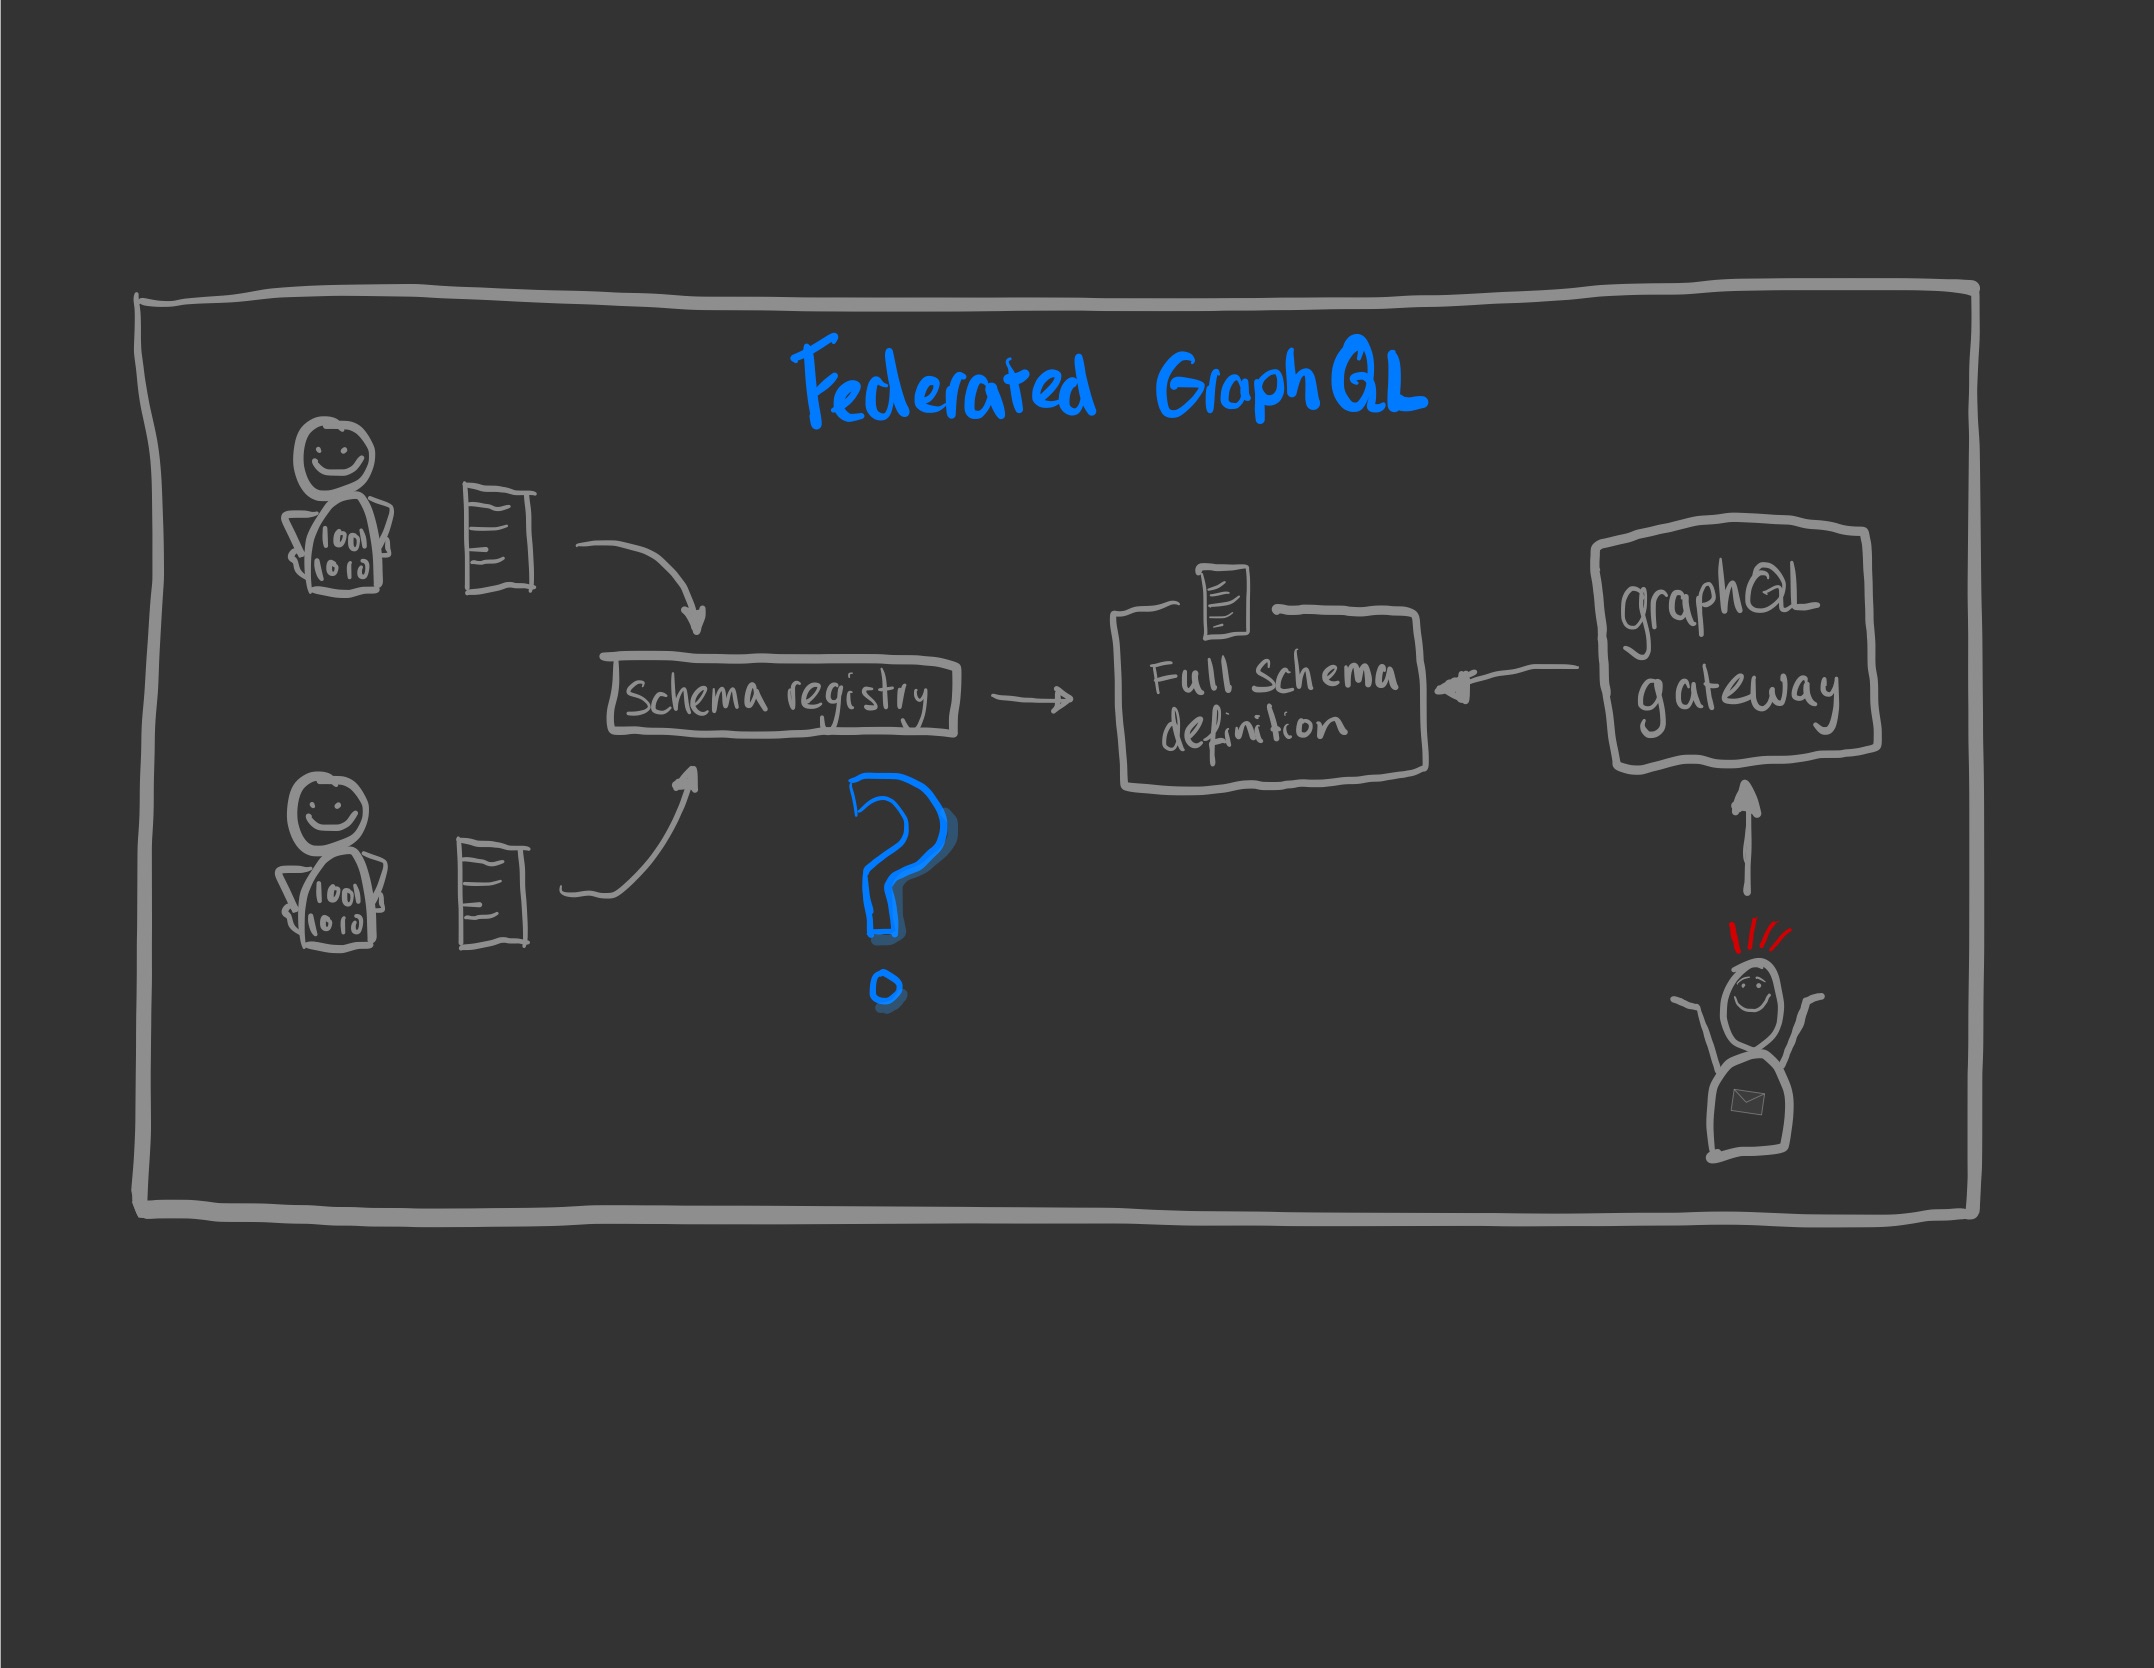 Federated GraphQL
1001
1010
Schema registry
Full schema
definition
graphQL
gateway
1001
1010
?